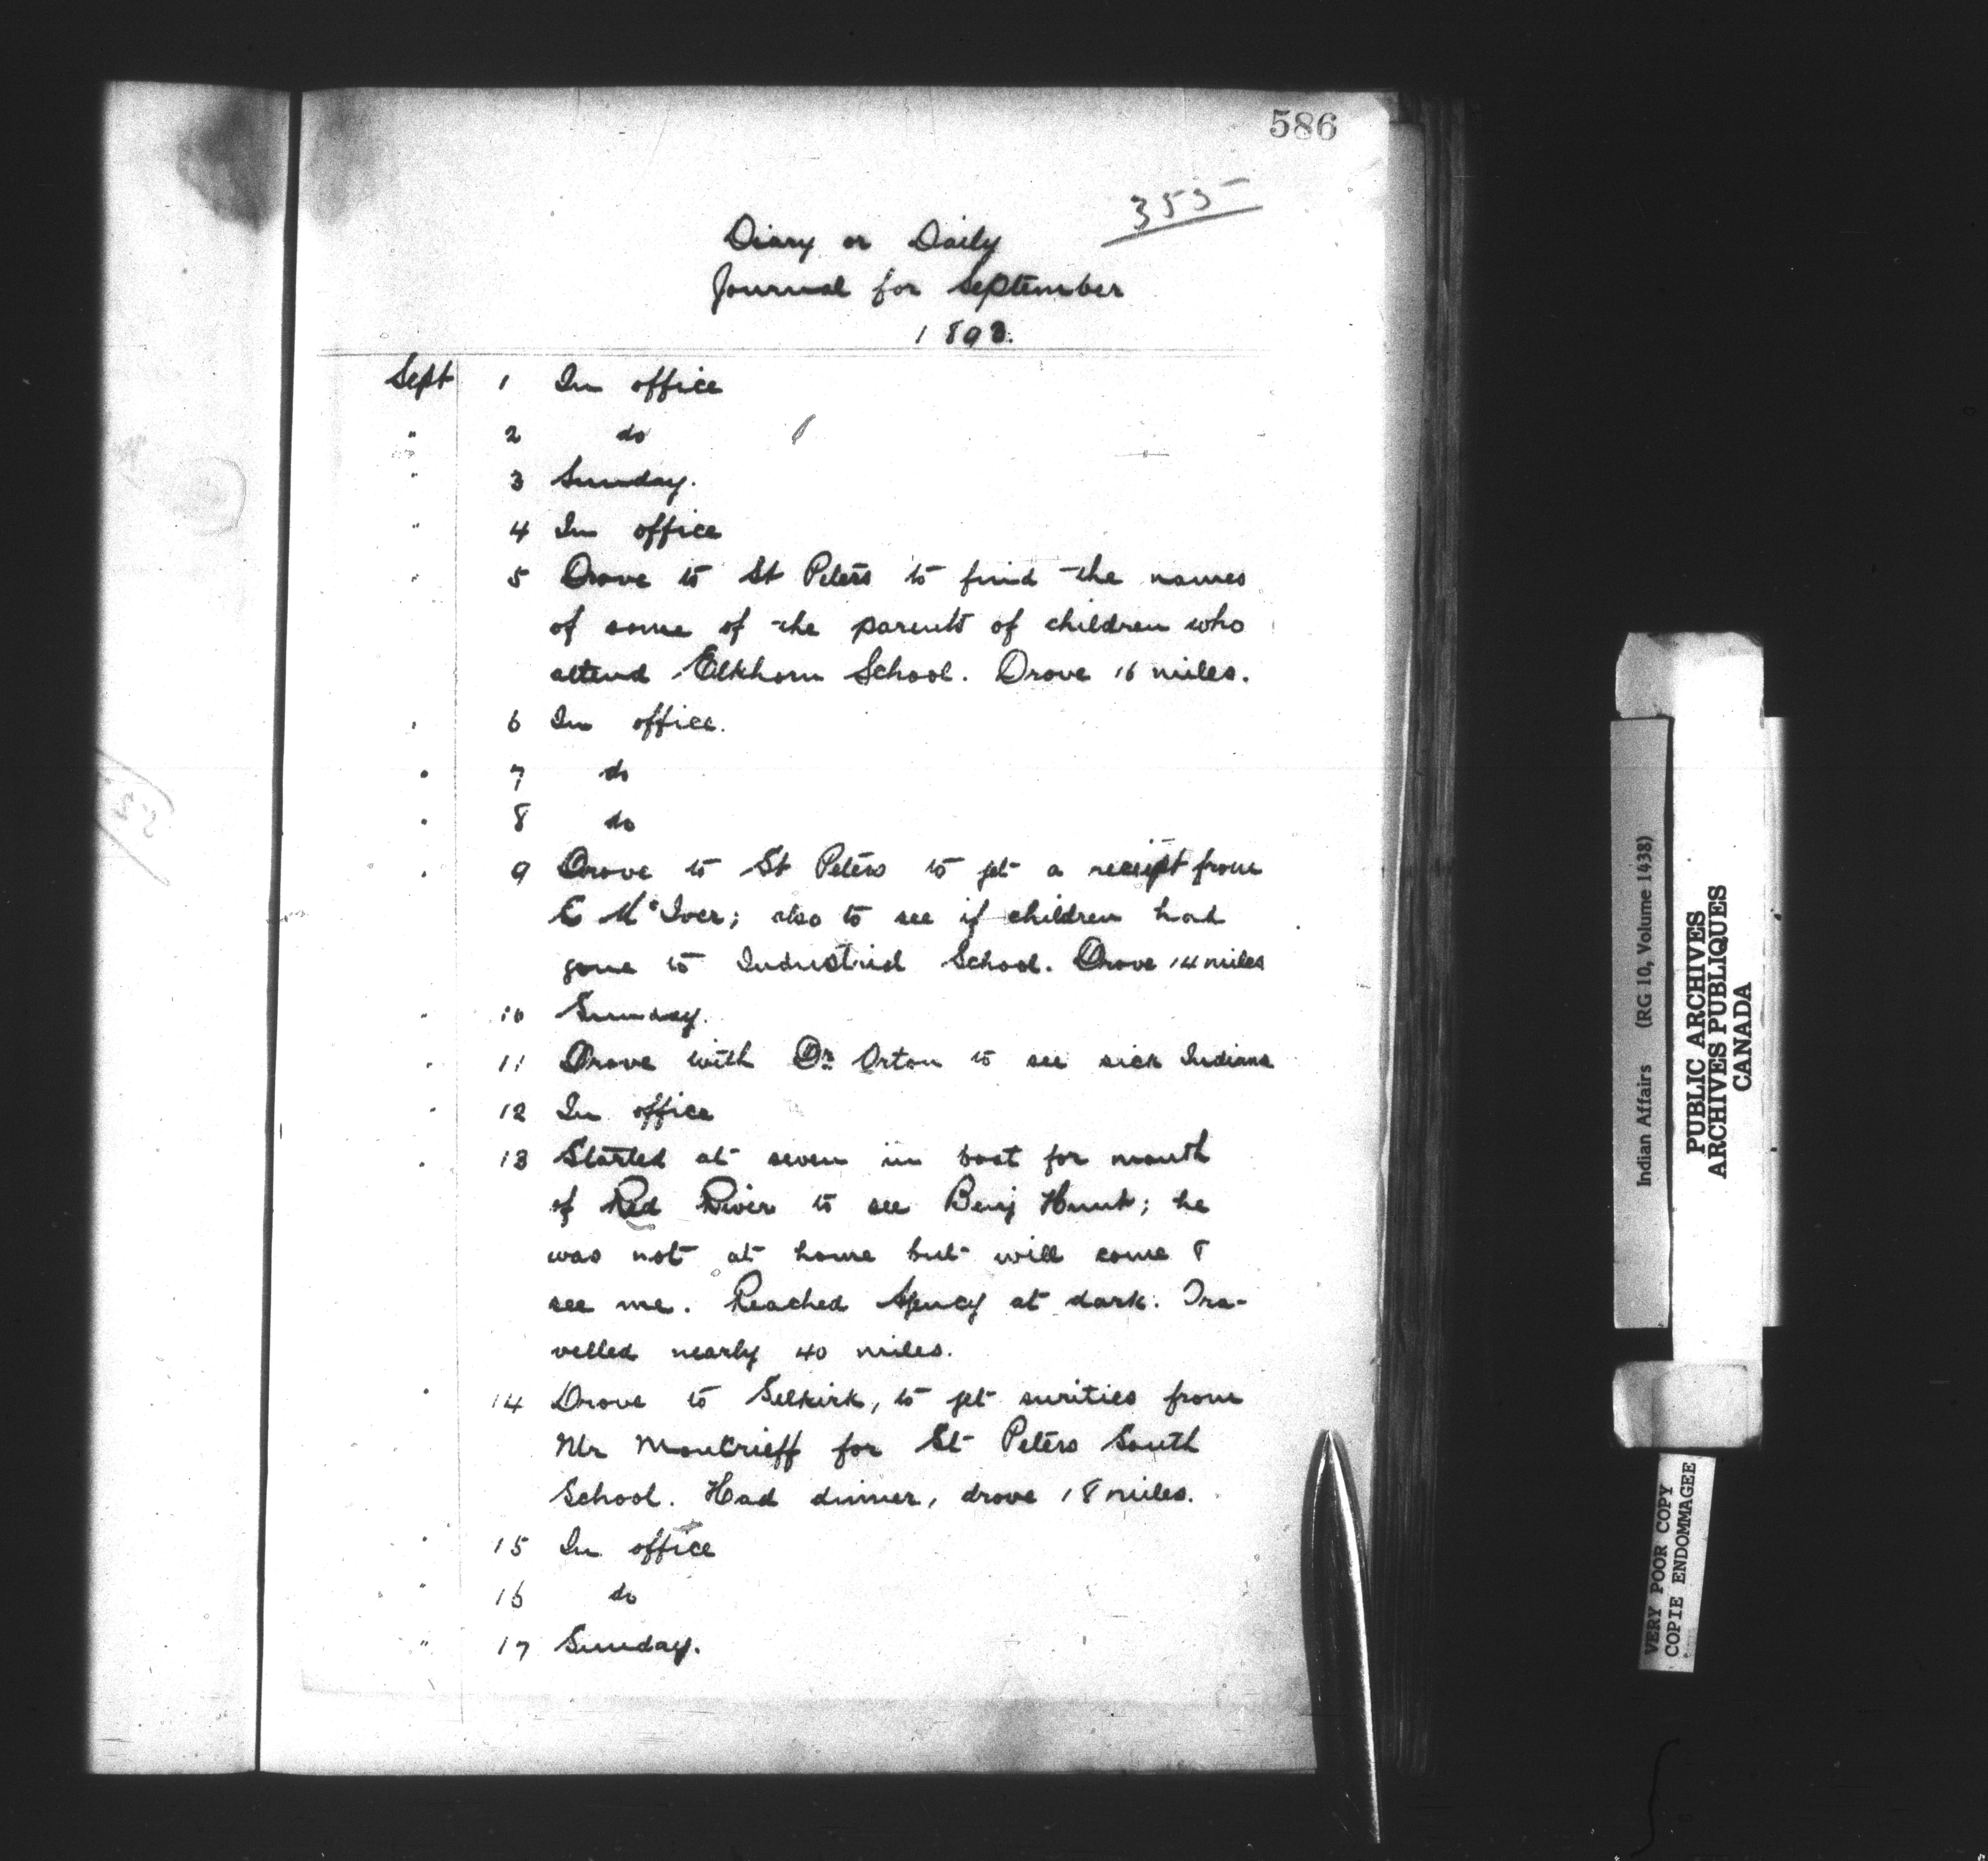 586
353
Diary or Daily
Journal for September
1893.
Sept 1 In office
" 2 do
" 3 Sunday.
" 4 In office
" 5 Drove to St Peters to find the names
of some of the parents of children who
attend Elkhorn School. Drove 16 miles.
" 6 In office.
" 7 do
" 8 do
" 9 Drove to St Peters to get a receipt from
E McIver; also to see if children had
gone to Industrial School. Drove 14 miles
" 10 Sunday.
" 11 Drove with Dr Orton to see sick Indians
" 12 In office
" 13 Started at seven in boat for mouth
of Red River to see Benj Hunt; he
was not at home but will come
see me. Reached Agency at dark. Tra-
velled nearly 40 miles.
" 14 Drove to Selkirk, to get surities from
Mr Moncrieff for St Peters South
School. Had dinner, drove 18 miles.
" 15 In office
" 16 do
" 17 Sunday.
Indian Affairs (RG 10, Volume 1438)
PUBLIC ARCHIVES
ARCHIVES PUBLIQUES
CANADA
VERY POOR COPY
COPIE ENDOMMAGEE